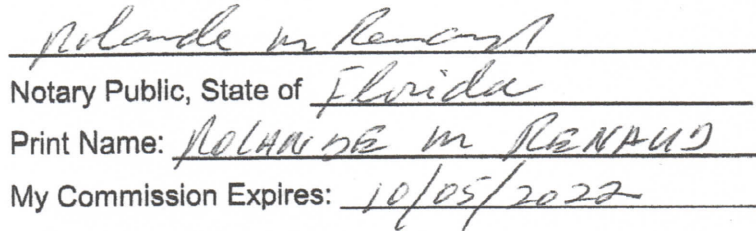 Rolande m Renaud
Notary Public, State of Florida
Print Name: ROLANDE m RENAUD
My Commission Expires: 10/05/2022